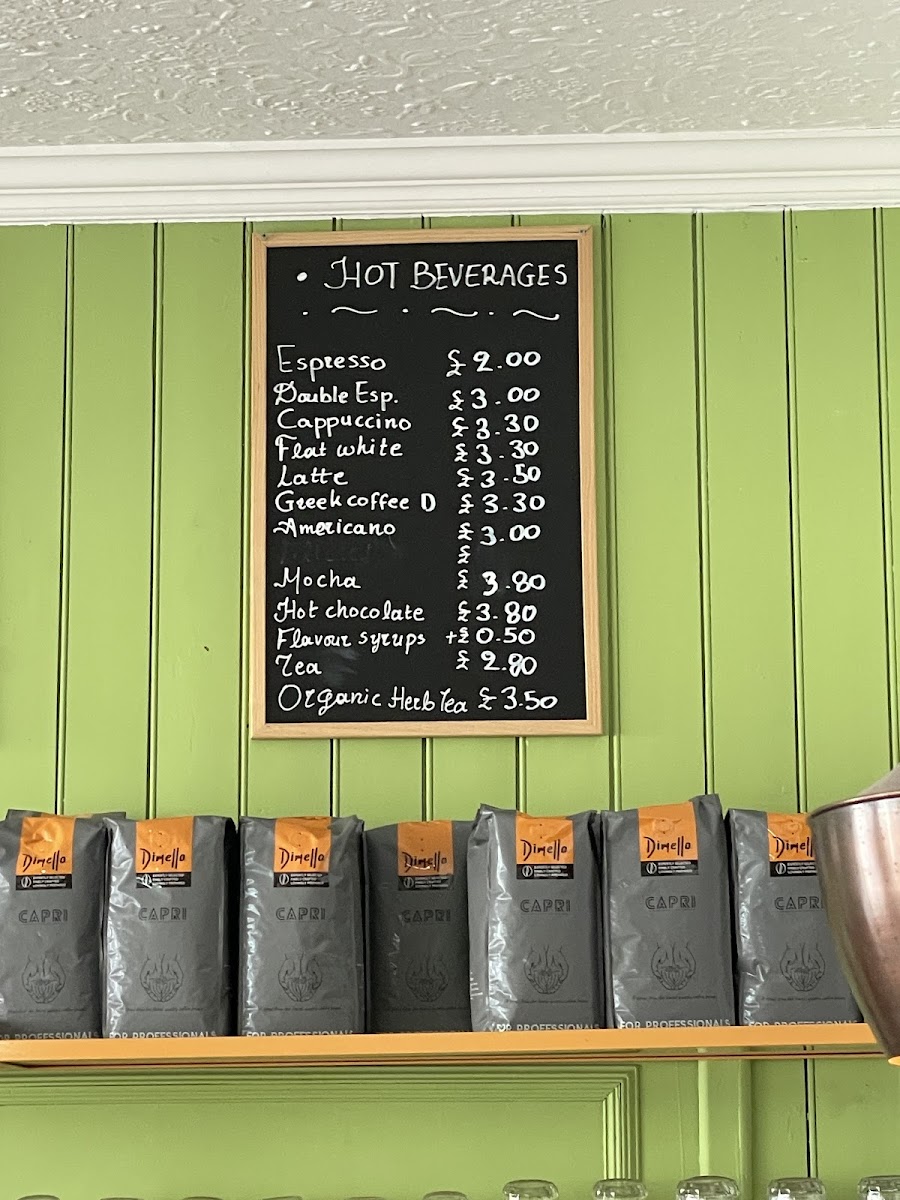 • HOT BEVERAGES
Espresso £2.00
Double Esp. £3.00
Cappuccino £3.30
Flat white £3.30
Latte £3.50
Greek coffee D £3.30
Americano £3.00
£
Mocha £3.80
Hot chocolate £3.80
Flavour syrups +£0.50
Tea £2.80
Organic Herb Tea £3.50
Dimello Dimello Dimello Dimello Dimello Dimello Dimello
CAPRI CAPRI CAPRI CAPRI CAPRI CAPRI CAPRI
FOR PROFESSIONALS FOR PROFESSIONALS FOR PROFESSIONALS FOR PROFESSIONALS FOR PROFESSIONALS FOR PROFESSIONALS